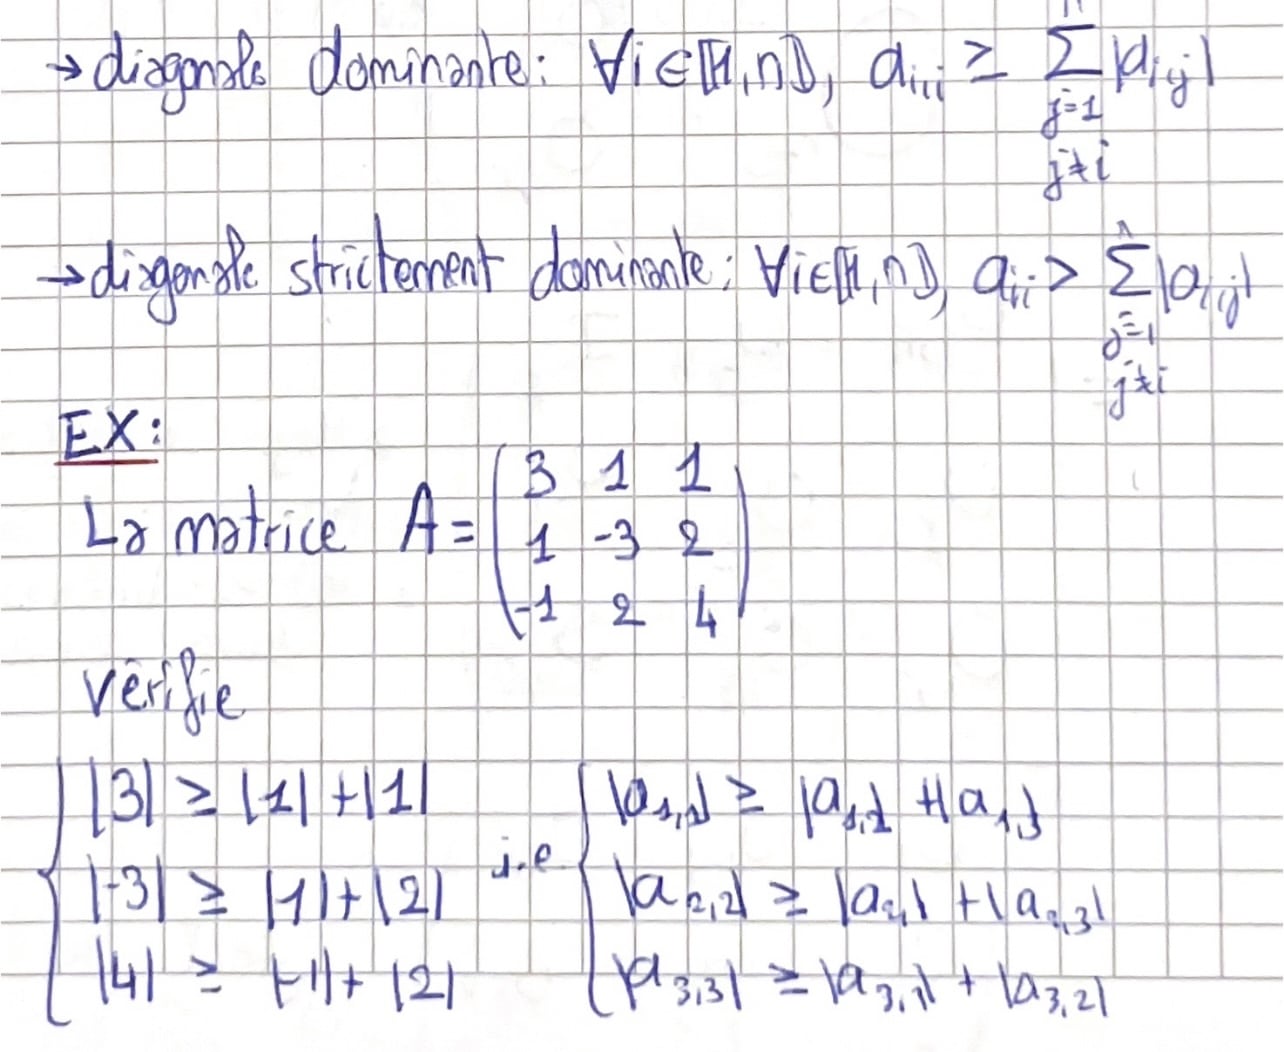 → diagonale dominante: ∀i∈⟦1,n⟧, a_{i,i} ≥ ∑_{j=1, j≠i}^{n} |a_{i,j}|
→ diagonale strictement dominante: ∀i∈⟦1,n⟧, a_{i,i} > ∑_{j=1, j≠i}^{n} |a_{i,j}|
EX:
La matrice A = ( 3 1 1
1 -3 2
-1 2 4 )
vérifie
{ |3| ≥ |1| + |1| i.e. { |a_{1,1}| ≥ |a_{1,2}| + |a_{1,3}|
|-3| ≥ |1| + |2| |a_{2,2}| ≥ |a_{2,1}| + |a_{2,3}|
|4| ≥ |-1| + |2| |a_{3,3}| ≥ |a_{3,1}| + |a_{3,2}|